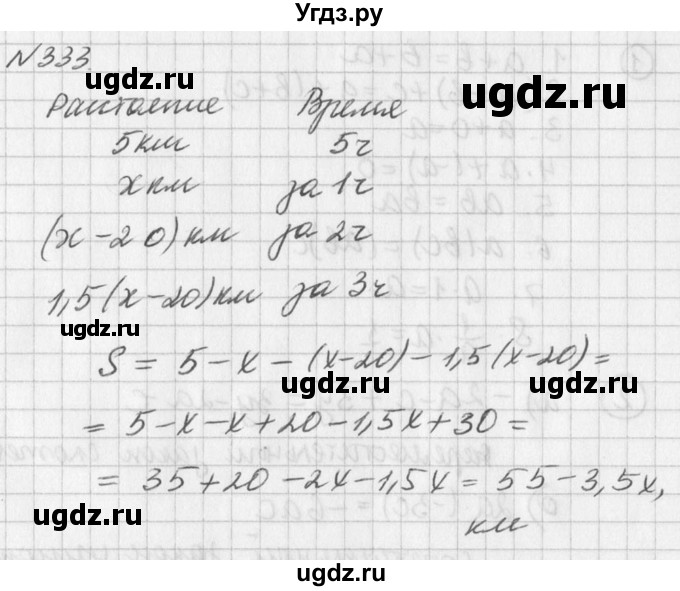 Угдз.ру
N333
Расстояние Время
5км 5ч
x км за 1ч
(x-20) км за 2ч
1,5(x-20) км за 3ч
S = 5-x-(x-20)-1,5(x-20)=
= 5-x-x+20-1,5x+30=
= 35+20-2x-1,5x = 55-3,5x,
км
ugdz.ru
ugdz.ru
ugdz.ru
ugdz.ru
ugdz.ru
ugdz.ru
ugdz.ru
ugdz.ru